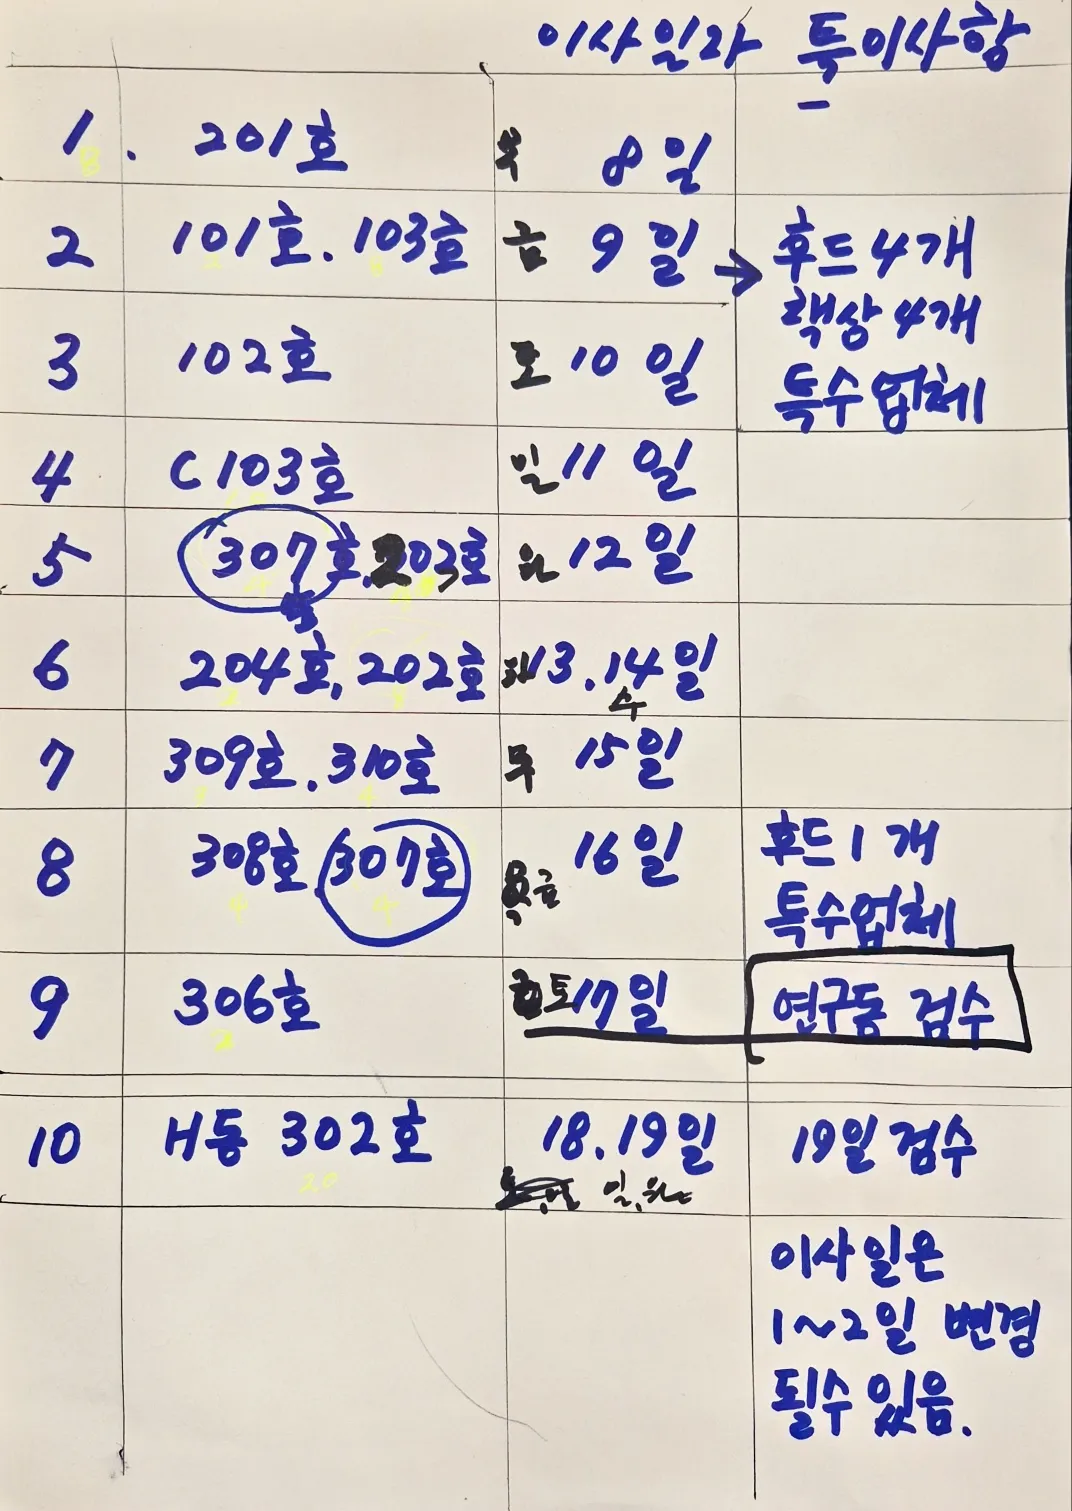 이사일자 특이사항
1. 201호 목 8일
2 101호. 103호 금 9일 → 후드 4개
책상 4개
3 102호 토 10일 특수업체
4 C103호 일 11일
5 307호, 203호 월 12일
6 204호, 202호 화 13.14일
수
7 309호. 310호 목 15일
8 308호 307호 금 16일 후드 1개
특수업체
9 306호 토 17일 연구동 검수
10 H동 302호 18.19일 19일 검수
20 일, 월
이사일은
1~2일 변경
될수 있음.